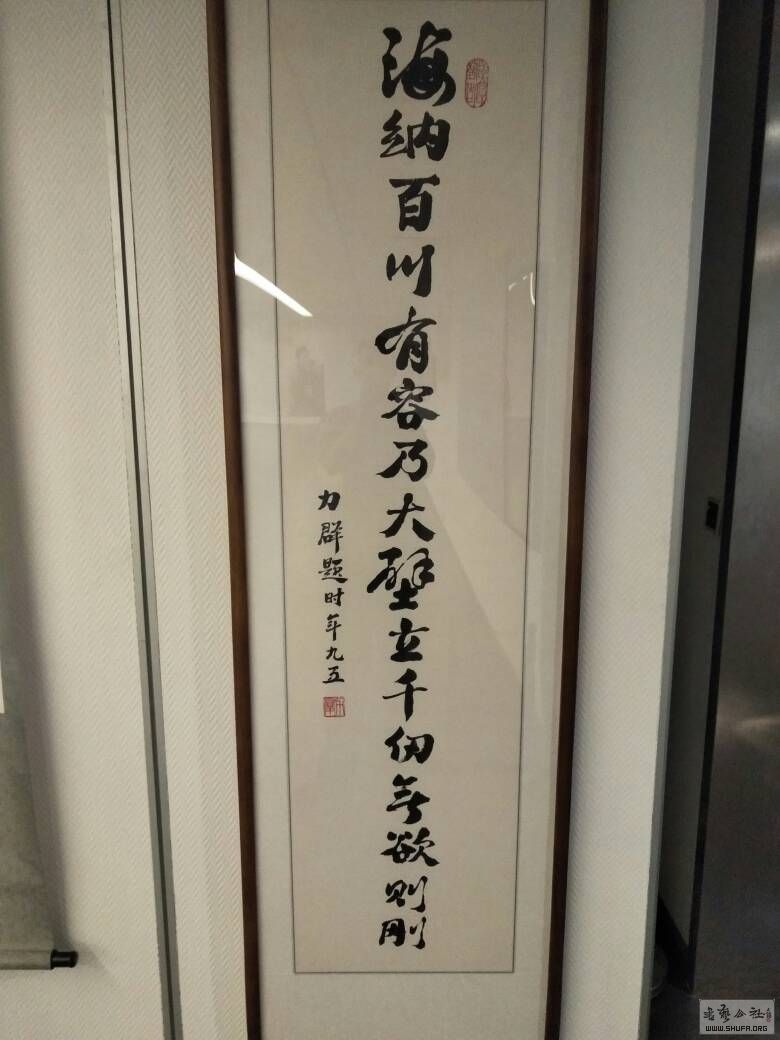 海纳百川有容乃大壁立千仞无欲则刚
力群题时年九五
书艺公社
WWW.SHUFA.ORG